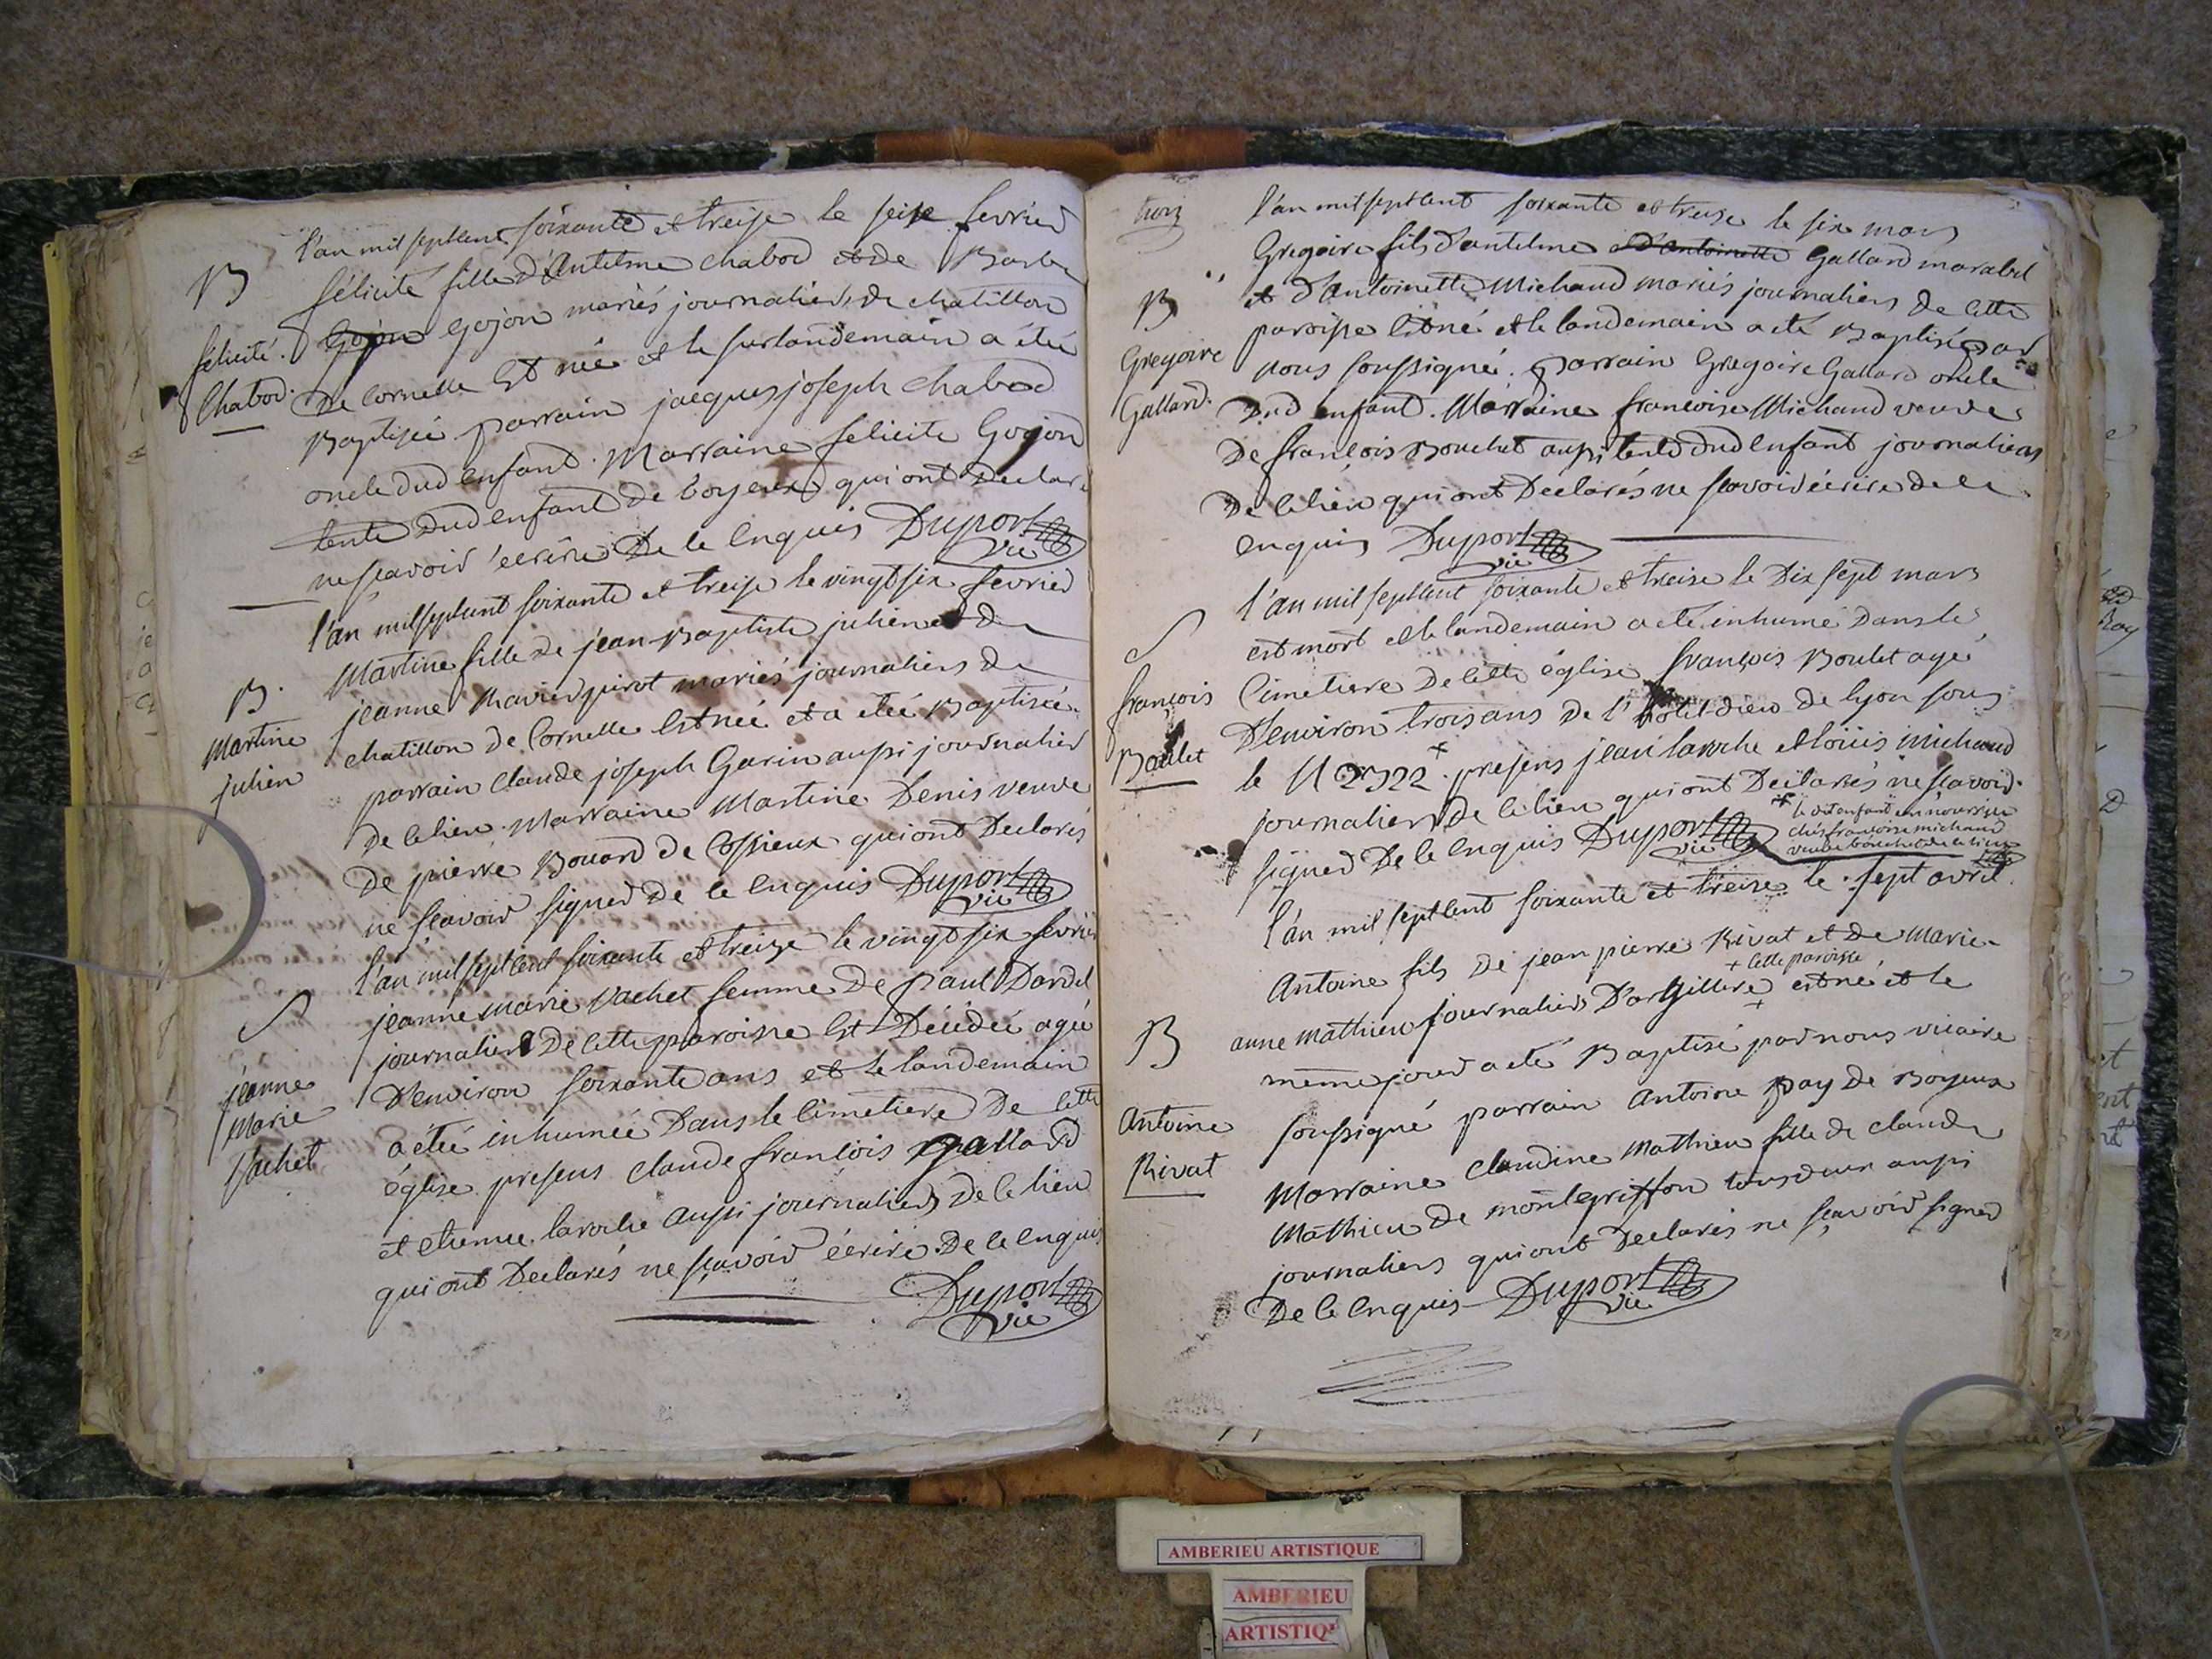 B
félicité.
Chabod.
l'an mil sept cent soixante et treise le seise fevrier
félicité fille d'Antelme chabod et de Barbe
Gojon Gojon mariés journaliers de chatillon
De Cornelle Est née et le surlandemain a étée
Baptisée parrain jacques joseph Chabod
oncle dud enfant. Marraine felicite Gojon
tente Dud enfant de boyeux qui ont Declaré
ne sçavoir écrire De ce Enquis Duport
vic
B.
Martine
julien
l'an mil sept cent soixante et treise le vingt six fevrier
Martine fille de jean Baptiste julien et de
jeanne Marie pirot mariés journaliers de
chatillon de Cornelle Est née et a étée Baptisée
parrain Claude joseph Garin aussi journalier
De ce lieu. Marraine Martine Denis veuve
De pierre Bouard de Ossieux qui ont Declarés
ne sçavoir signer De ce Enquis Duport
vic
S
jeanne
Marie
Vachet
l'an mil sept cent soixante et treize le vingt six fevrier
jeanne marie Vachet femme De paul Dardel
journalier De cette paroisse Est Decedée agée
D'environ soixante ans et le landemain
a étée inhumée Dans le Cimetiere De cette
église presens claude françois Gallard
et etienne laroche aussi journaliers De ce lieu
qui ont Declarés ne sçavoir écrire De ce Enquis
Duport
vic
trois
B
Gregoire
Gallard.
l'an mil sept cent soixante et treize le six mars
Gregoire fils d'antelme d'Antoinette Gallard marabel
et d'Antoinette Michaud mariés journaliers De cette
paroisse Est né et le landemain a été Baptisé par
nous soussigné. parrain Gregoire Gallard oncle
Dud enfant. Marraine francoise Michaud veuve
De françois Bouchet aussi tente dud Enfant journaliers
De ce lieu qui ont Declarés ne sçavoir écrire de ce
enquis Duport
vic
S
françois
Boulet
l'an mil sept cent soixante et treise le Dix sept mars
est mort et le landemain a été inhumé Dans le
Cimetiere De cette église françois Boulet agé
D'environ trois ans De l'hotel-dieu de lyon sous
le N 2522 + presens jean laroche et loüis michaud
journaliers De ce lieu qui ont Declarés ne sçavoir
signer De ce Enquis Duport
vic
+ le dit enfant en nourrisse
chés francoise michaud
veuve bouchet de ce lieu
B
Antoine
Rivat
l'an mil sept cent soixante et treize le sept avril
Antoine fils De jean pierre Rivat et De marie
+ Cette paroisse
anne Mathieu journaliers D'argillere + est né et le
meme jour a été Baptisé par nous vicaire
soussigné parrain Antoine pay De Boyeux
Marraine Claudine Mathieu fille de claude
Mathieu De montgriffon tous deux aussi
journaliers qui ont Declarés ne sçavoir signer
De ce Enquis Duport
vic
AMBERIEU ARTISTIQUE
AMBERIEU
ARTISTIQ